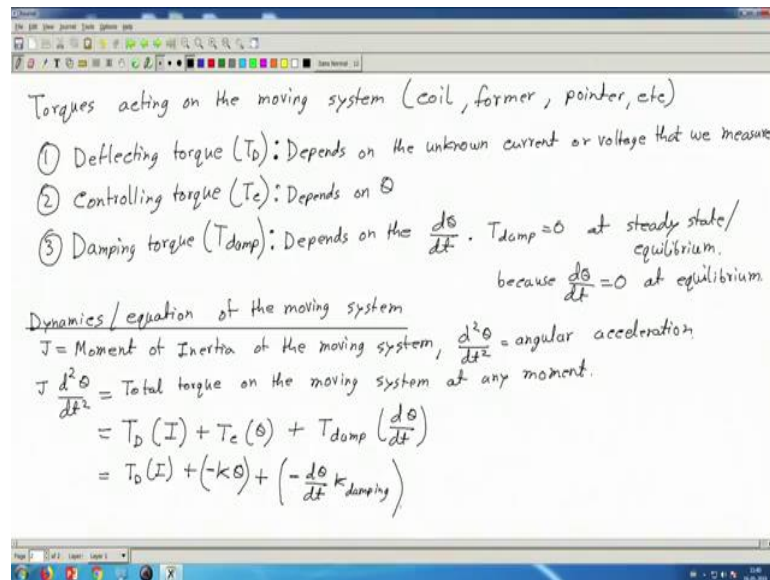 Torques acting on the moving system (coil, former, pointer, etc)
① Deflecting torque (T_D): Depends on the unknown current or voltage that we measure
② Controlling torque (T_c): Depends on θ
③ Damping torque (T_damp): Depends on the dθ/dt. T_damp = 0 at steady state/
equilibrium.
because dθ/dt = 0 at equilibrium.
Dynamics/equation of the moving system
J = Moment of Inertia of the moving system, d²θ/dt² = angular acceleration.
J d²θ/dt² = Total torque on the moving system at any moment.
= T_D (I) + T_c (θ) + T_damp (dθ/dt)
= T_D (I) + (-kθ) + (-dθ/dt k_damping)